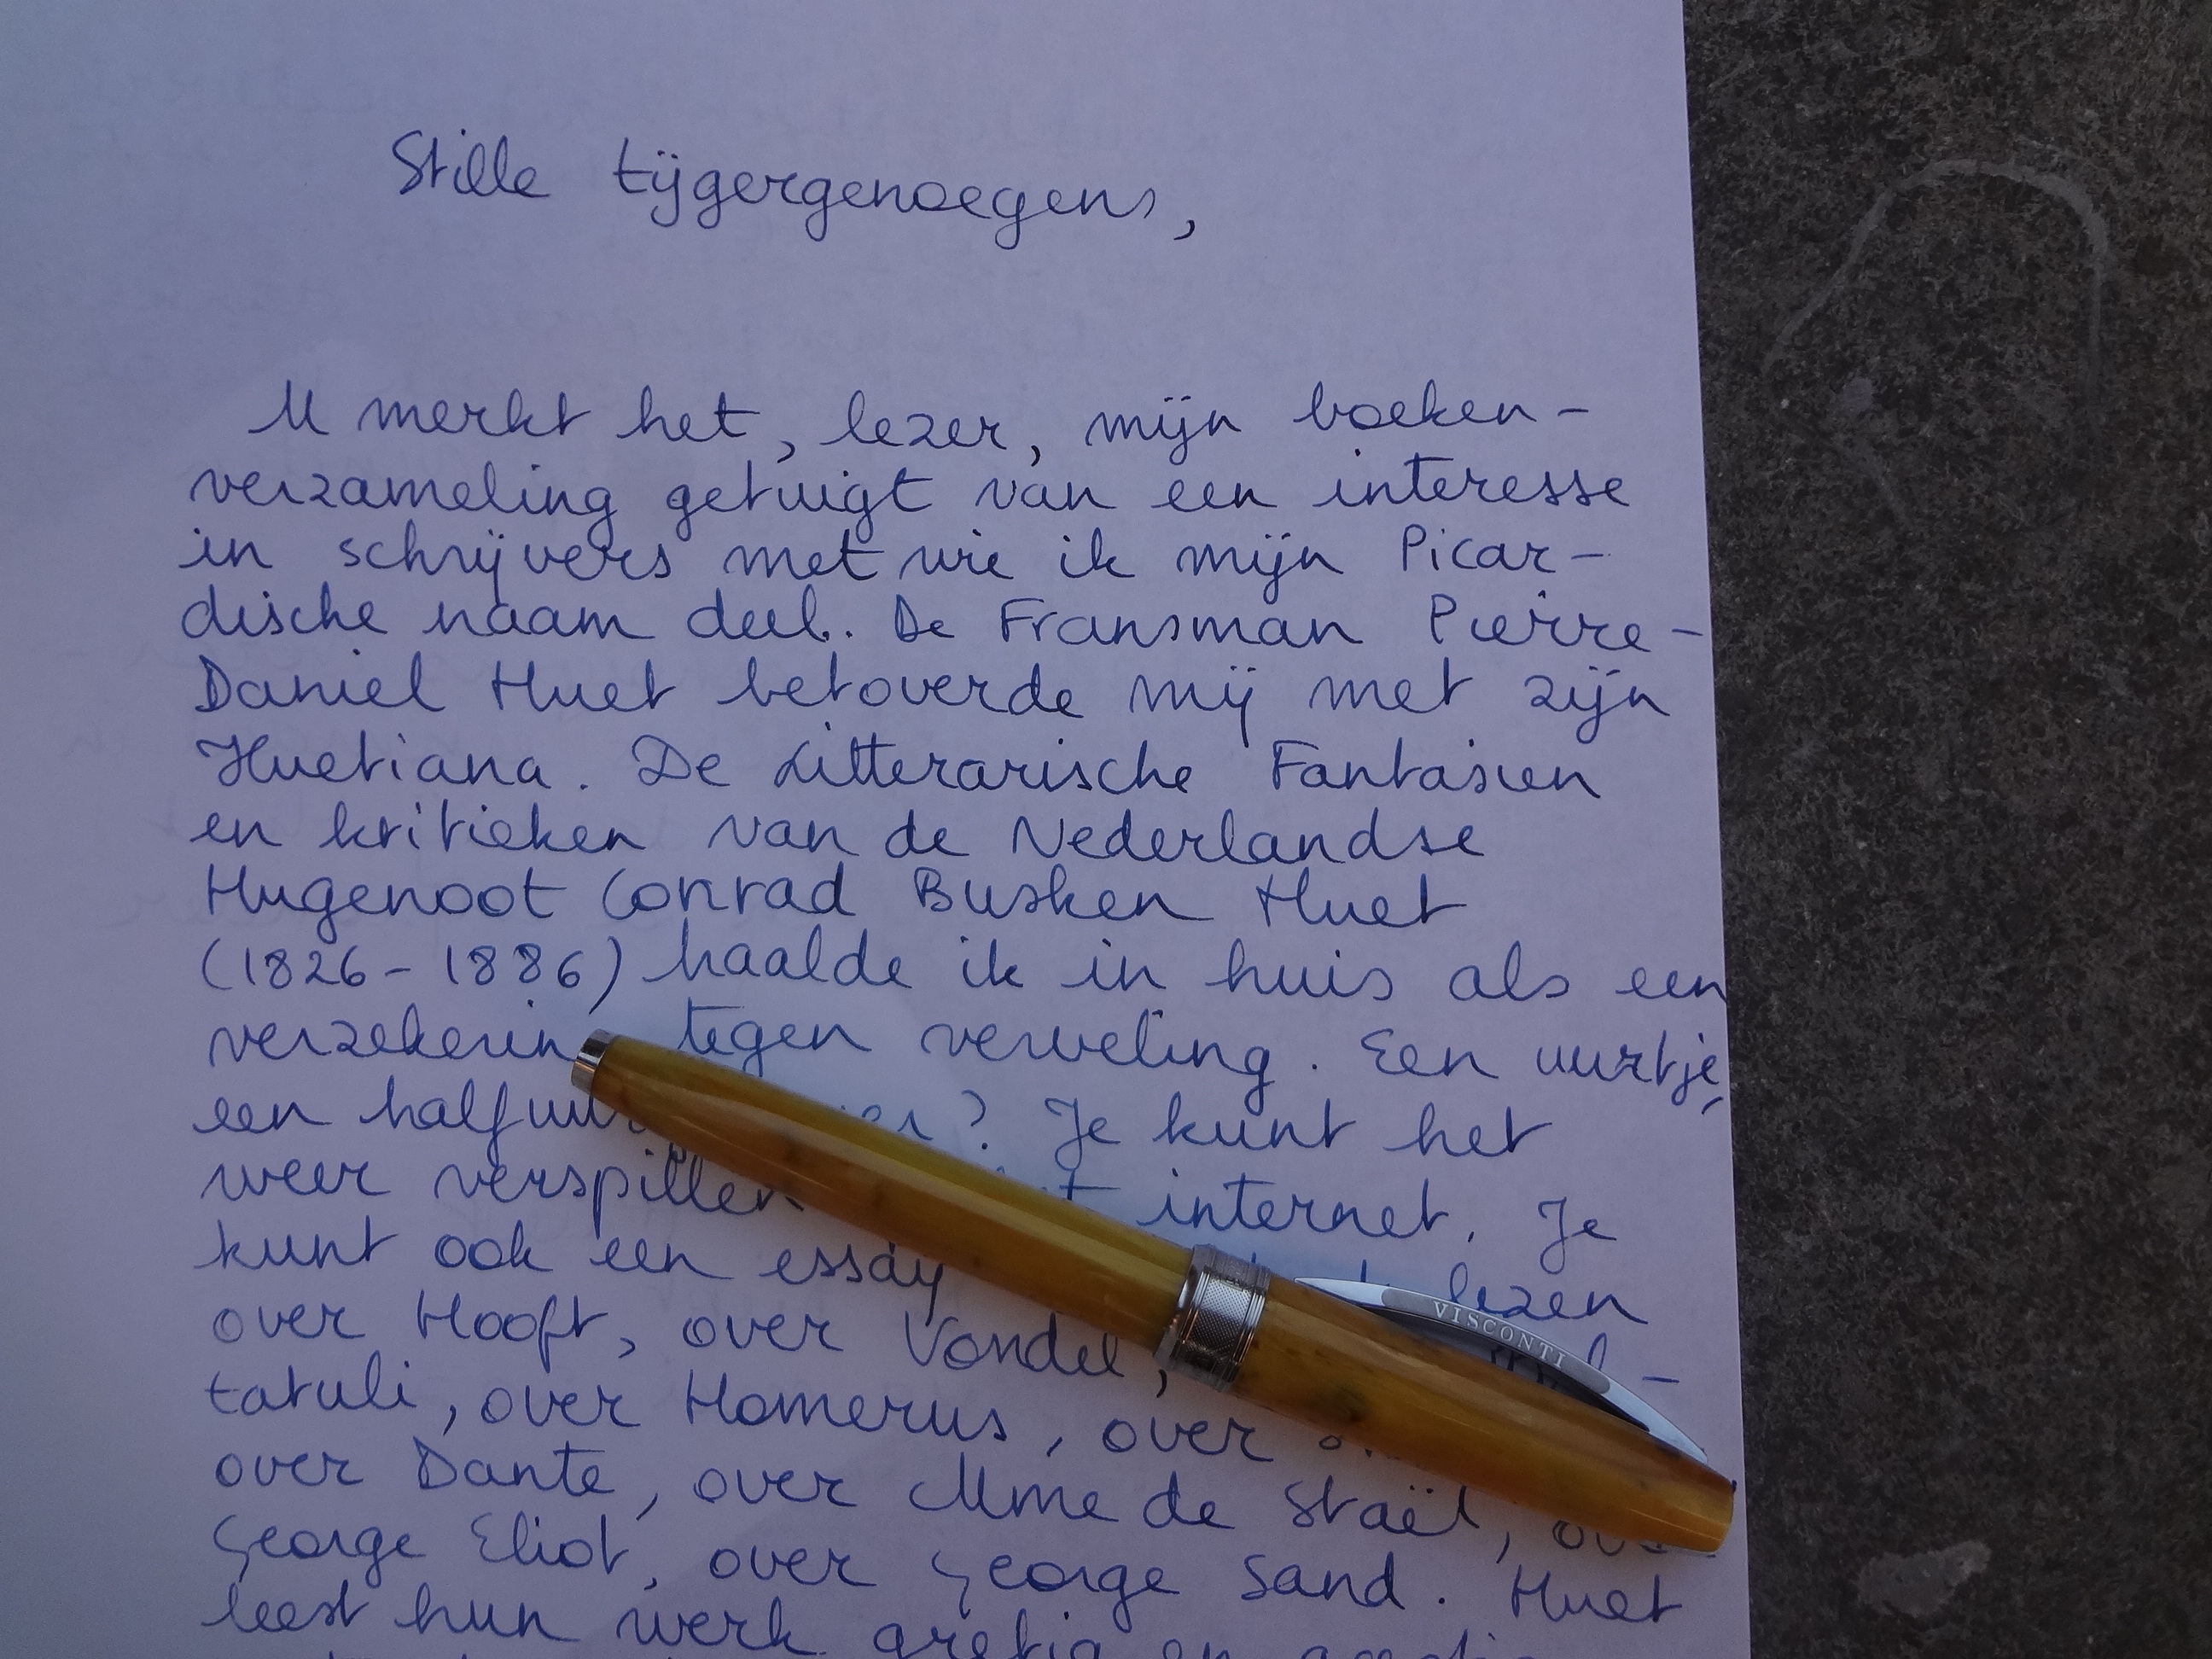 Stille tijgergenoegens,
U merkt het, lezer, mijn boeken-
verzameling getuigt van een interesse
in schrijvers met wie ik mijn Picar-
dische naam deel. De Fransman Pierre-
Daniel Huet betoverde mij met zijn
Huetiana. De Litterarische Fantasien
en kritieken van de Nederlandse
Hugenoot Conrad Busken Huet
(1826-1886) haalde ik in huis als een
tegen verweling. Een uurtje,
een ? Je kunt het
weer verspillen internet. Je
kunt ook een essay lezen
over Hooft, over Vondel,
tatuli, over Homerus, over
over Dante, over Mme de Staël,
George Eliot, over George Sand. Huet
leest hun werk gretig en
VISCONTI